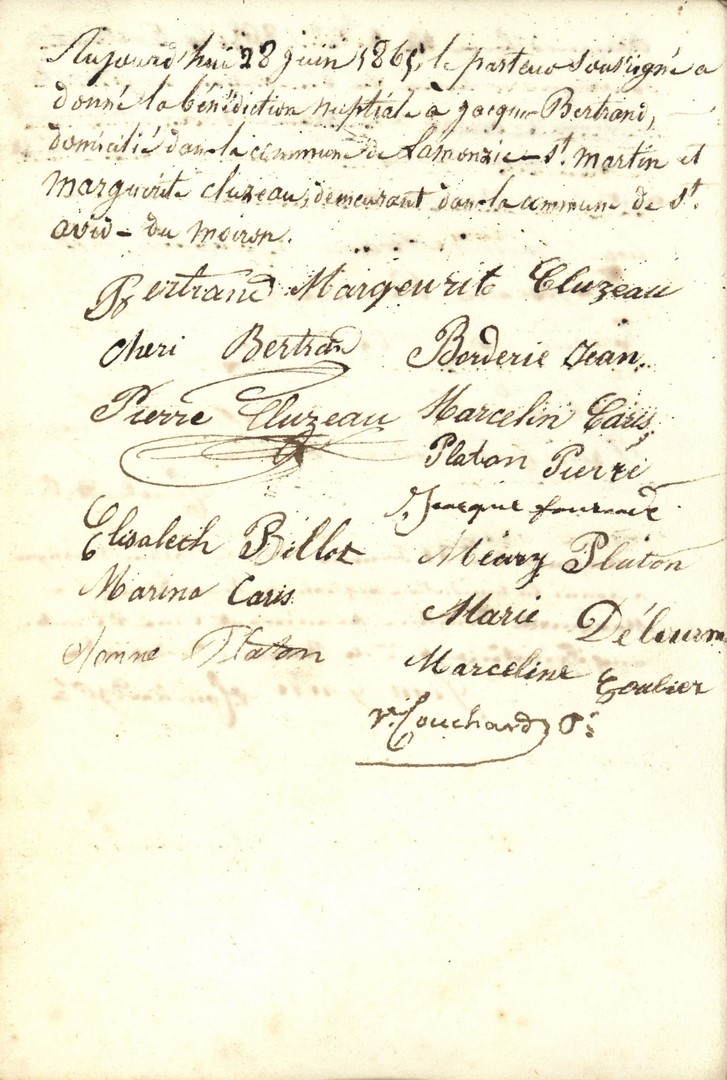 Aujourd'hui 28 juin 1865, le pasteur soussigné a
donné la bénédiction nuptiale à jacque Bertrand,
domicilié dans la commune de Lamonzie-st. martin et
marguerite cluzeau, demeurant dans la commune de st.
avid-du moiron.
Bertrand Margeurite Cluzeau
cheri Bertrand Borderie Jean
Pierre Cluzeau Marcelin Caris
Platon Pierre
Jacque
Elisabeth Billot Méary Platon
Marina Caris Marie
Platon Marceline
Couchard